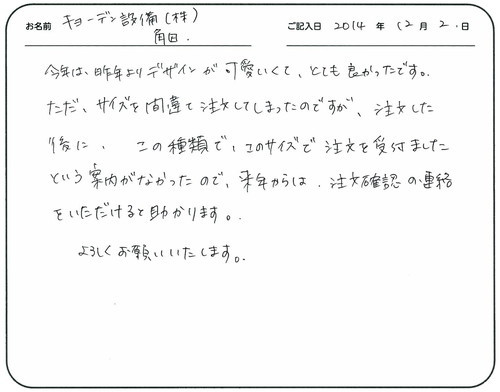 お名前 キョーデン設備(株) ご記入日 2014 年 12 月 2 日
角田.
今年は、昨年よりデザインが可愛いくて、とても良かったです。
ただ、サイズを間違て注文してしまったのですが、注文した
後に、この種類で、このサイズで注文を受付ました
という案内がなかったので、来年からは、注文確認の連絡
をいただけると助かります。
よろしくお願いいたします。